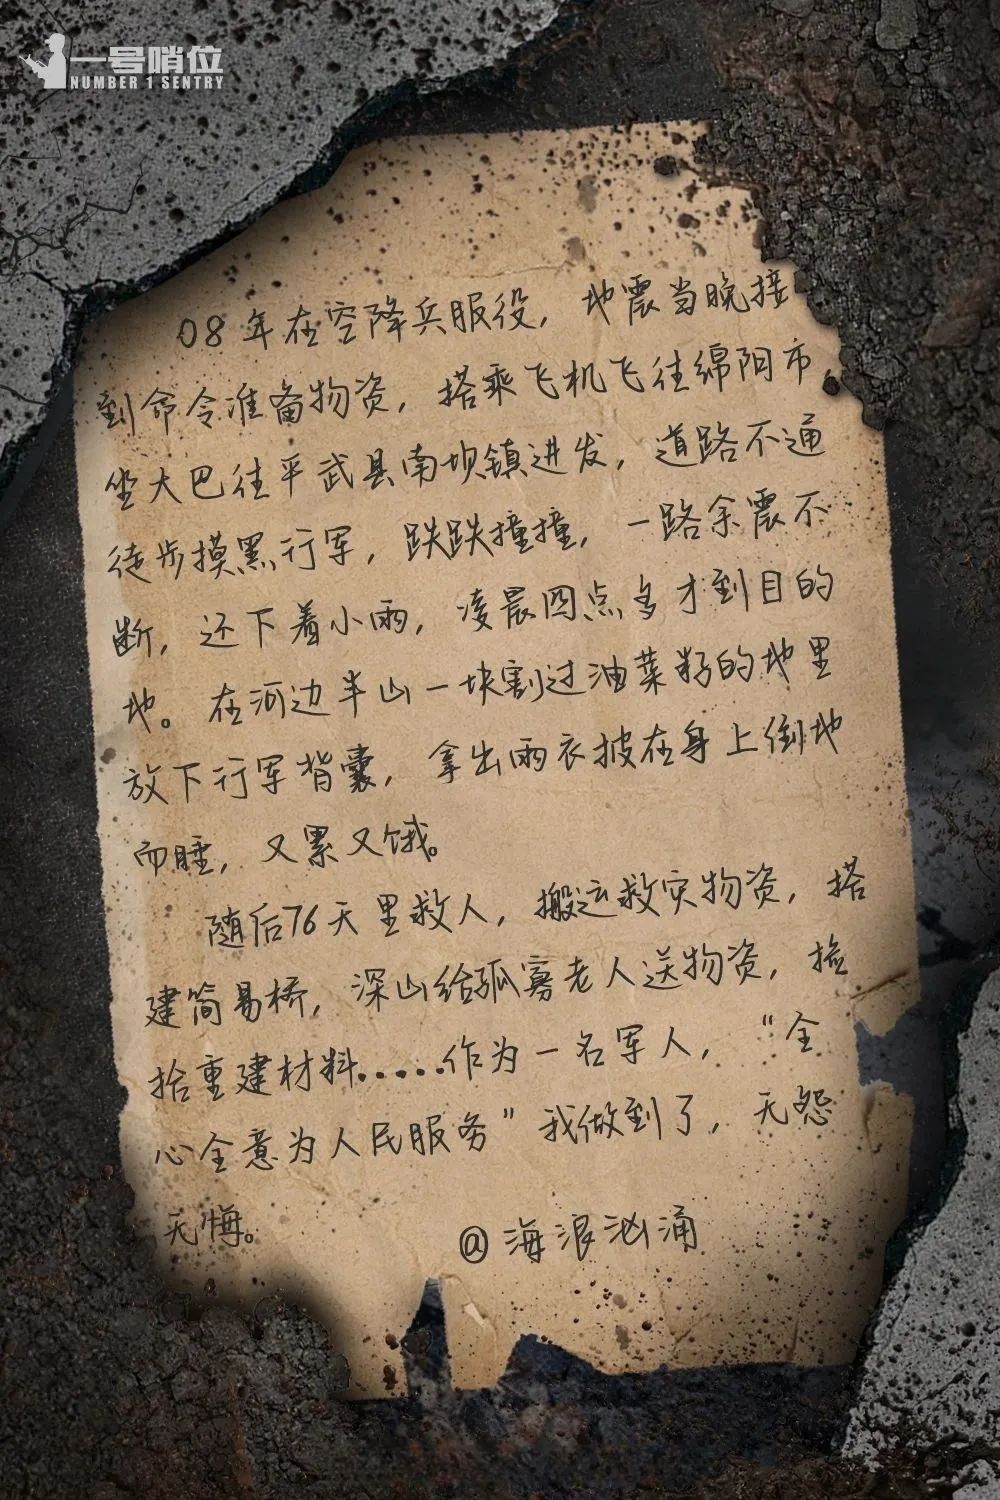 一号哨位
NUMBER 1 SENTRY
08年在空降兵服役，地震当晚接
到命令准备物资，搭乘飞机飞往绵阳市，
坐大巴往平武县南坝镇进发，道路不通
徒步摸黑行军，跌跌撞撞，一路余震不
断，还下着小雨，凌晨四点多才到目的
地。在河边半山一块割过油菜籽的地里
放下行军背囊，拿出雨衣披在身上倒地
而睡，又累又饿。
随后76天里救人，搬运救灾物资，搭
建简易桥，深山给孤寡老人送物资，捡
拾重建材料.....作为一名军人，“全
心全意为人民服务”我做到了，无怨
无悔。
@海浪汹涌